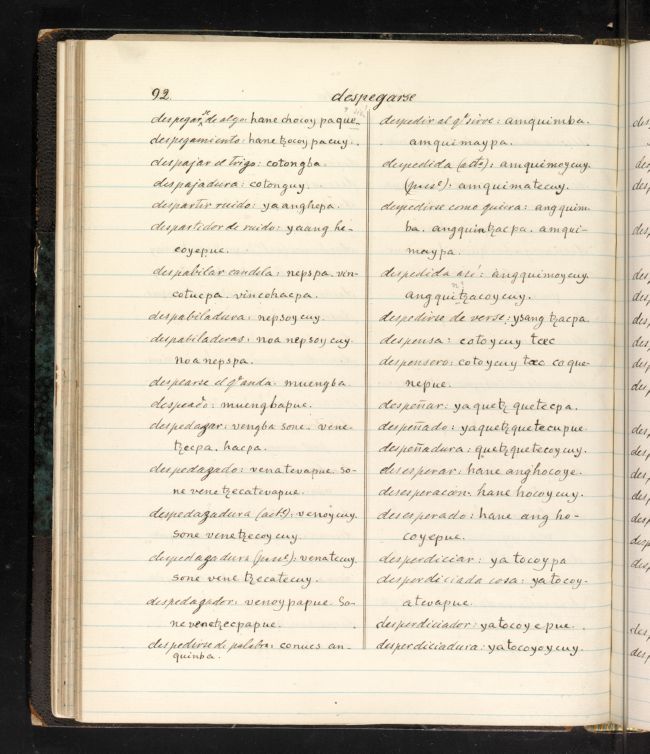 92.
despegarse
despegarse de algo: hane chocoy paque.
despegamiento: hane tzocoy pa cuy.
despajar el trigo: cotongba.
despajadura: cotonguy.
despartir ruido: yaanghepa.
despartidor de ruido: yaang he-
coyepue.
despabilar candela: nepspa. vin-
cotucpa. vincohacpa.
despabiladura: nepsoycuy.
despabiladeras: noa nepsoy cuy.
noa nepspa.
despearse el qe anda: muengba.
despeado: muengbapue.
despedazar: vengba sone. vene-
tzecpa. hacpa.
despedazado: venatevapue. so-
ne venetzecatevapue.
despedazadura (acto): venoycuy.
sone venetzecoycuy.
despedazadura (pasc): venatecuy.
sone vene tzecatecuy.
despedazador: venoypapue. So-
ne venetzecpapue.
despedirse de palabra: conues an-
quinba.
despedir al qe sirve: amquimba.
amquimaypa.
despedida (acto): amquimoycuy.
(pasc): amquimatecuy.
despedirse como quiera: angquim-
ba. angquintzacpa. amqui-
maypa.
despedida asi: angquimoycuy.
angquitzacoycuy.
despedirse de verse: ysang tzacpa
despensa: cotoycuy tæc
despensero: cotoycuy tæc co que-
nepue.
despeñar: yaquetz quetecpa.
despeñado: yaquetzquetecupue.
despeñadura: quetzquetecoycuy.
desesperar: hane anghocoye.
desesperacon. hane hocoycuy.
desesperado: hane ang ho-
coyepue.
desperdiciar: yatocoypa
desperdiciada cosa: yatocoy-
atevapue.
desperdiciador: yatocoy e pue.
desperdiciadura: yatocoyoycuy.